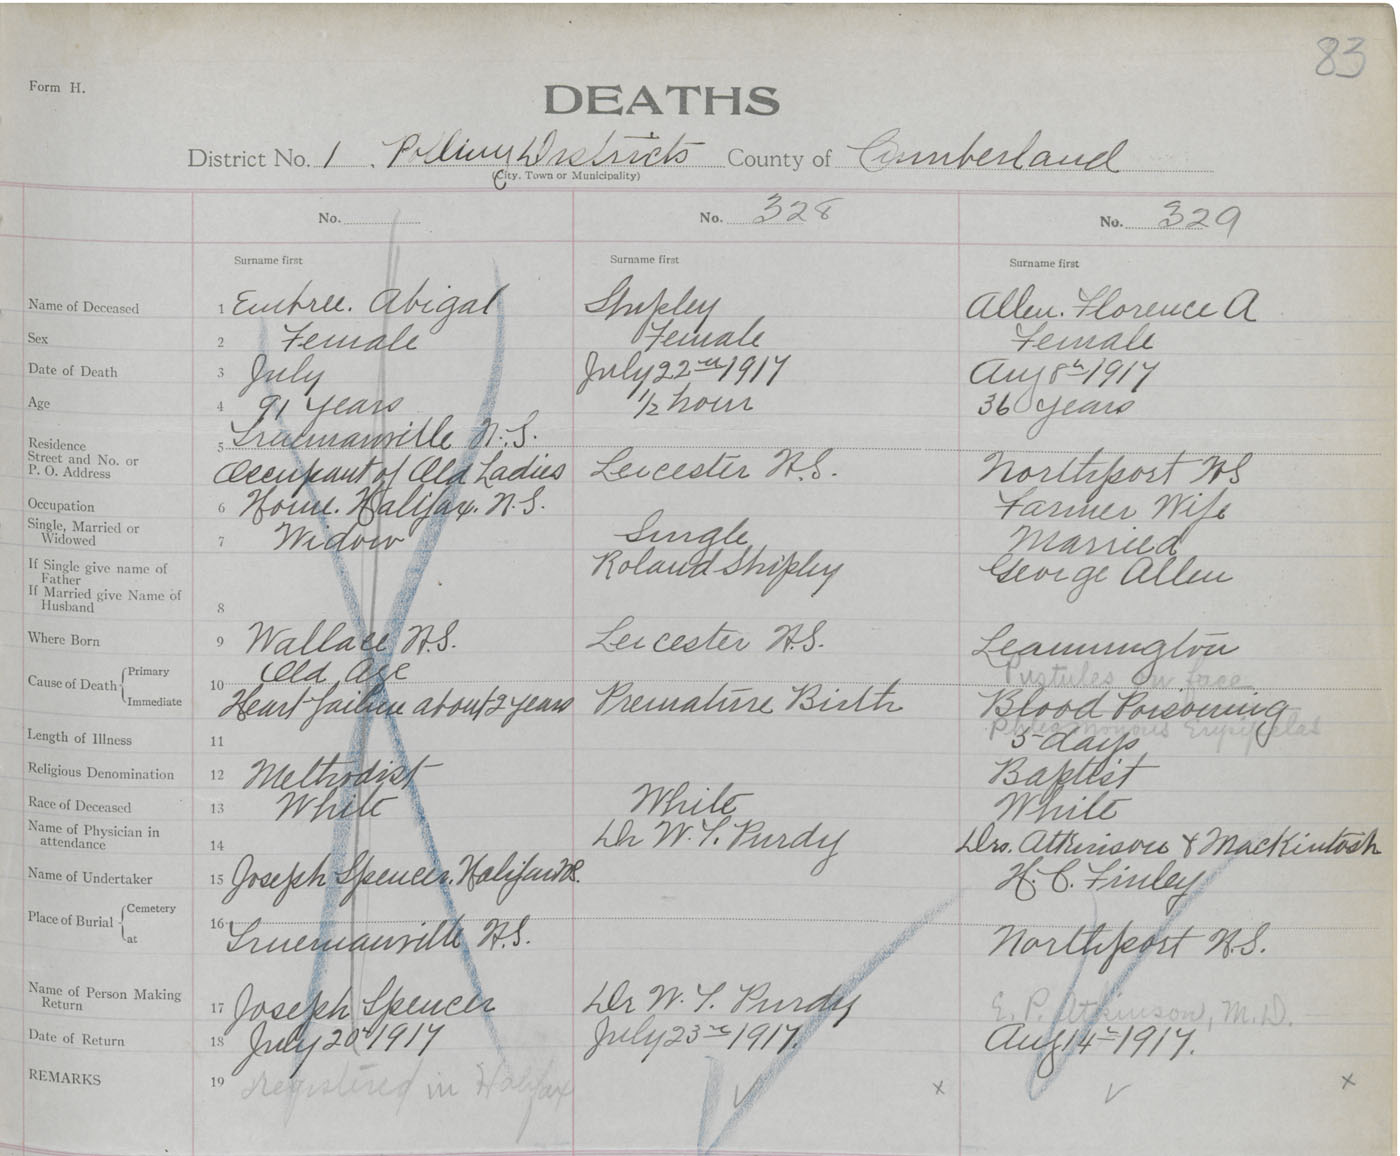 83
Form H.
DEATHS
District No. 1 . Polling Districts County of Cumberland
(City. Town or Municipality)
No. No. 328 No. 329
Surname first Surname first Surname first
Name of Deceased 1 Embree. Abigal Shipley Allen. Florence A
Sex 2 Female Female Female
Date of Death 3 July July 22nd 1917 Aug 8th 1917
Age 4 91 years 1/2 hour 36 years
Residence
Street and No. or
P. O. Address
5 Truemanville N.S.
Occupant of Old Ladies Leicester N.S. Northport NS
Occupation 6 Home. Halifax. N.S. Farmer Wife
Single, Married or
Widowed
7 Widow Single Married
If Single give name of
Father
Roland Shipley George Allen
If Married give Name of
Husband
8
Where Born 9 Wallace N.S. Leicester N.S. Leamington
Cause of Death { Primary
Immediate
10 Old Age Pustules on face
Heart failure about 2 years Premature Birth Blood Poisoning
Phlegmonous Erysipelas
Length of Illness 11 5 days
Religious Denomination 12 Methodist Baptist
Race of Deceased 13 White White White
Name of Physician in
attendance
14 Dr W. T. Purdy Drs. Atkinson & MacKintosh
Name of Undertaker 15 Joseph Spencer. Halifax NS. H. C. Finley
Place of Burial { Cemetery
at
16 Truemanville N.S. Northport N.S.
Name of Person Making
Return
17 Joseph Spencer Dr W. T. Purdy E. P. Atkinson, M.D.
Date of Return 18 July 20th 1917 July 23rd 1917. Aug 14th 1917.
REMARKS 19 registered in Halifax